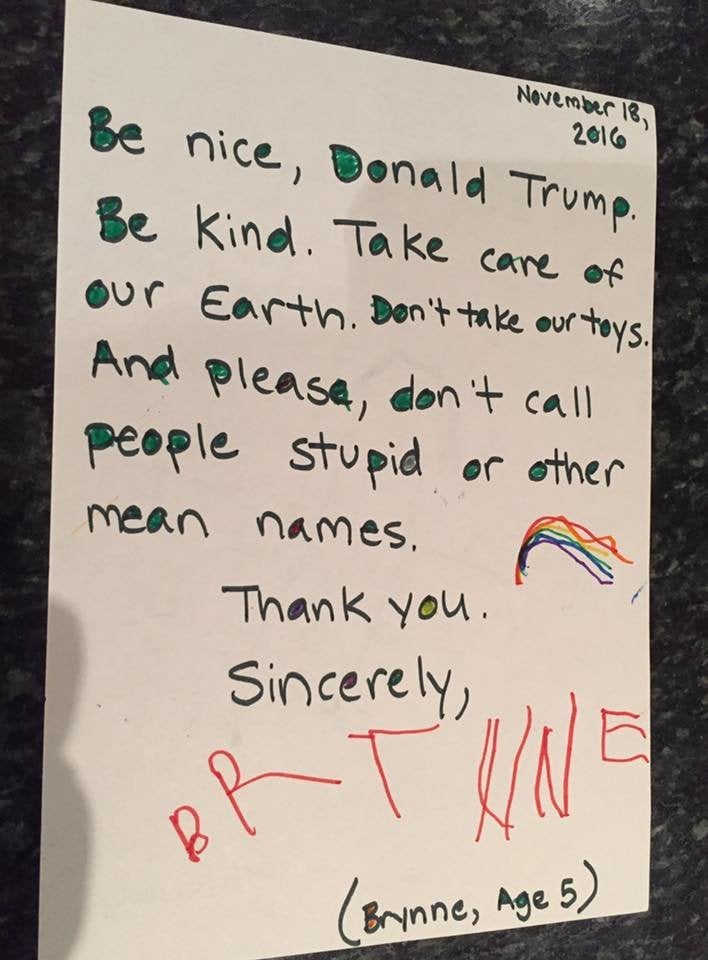 November 18,
2016
Be nice, Donald Trump.
Be kind. Take care of
our Earth. Don't take our toys.
And please, don't call
people stupid or other
mean names.
Thank you.
Sincerely,
BRTNNE
(Brynne, Age 5)